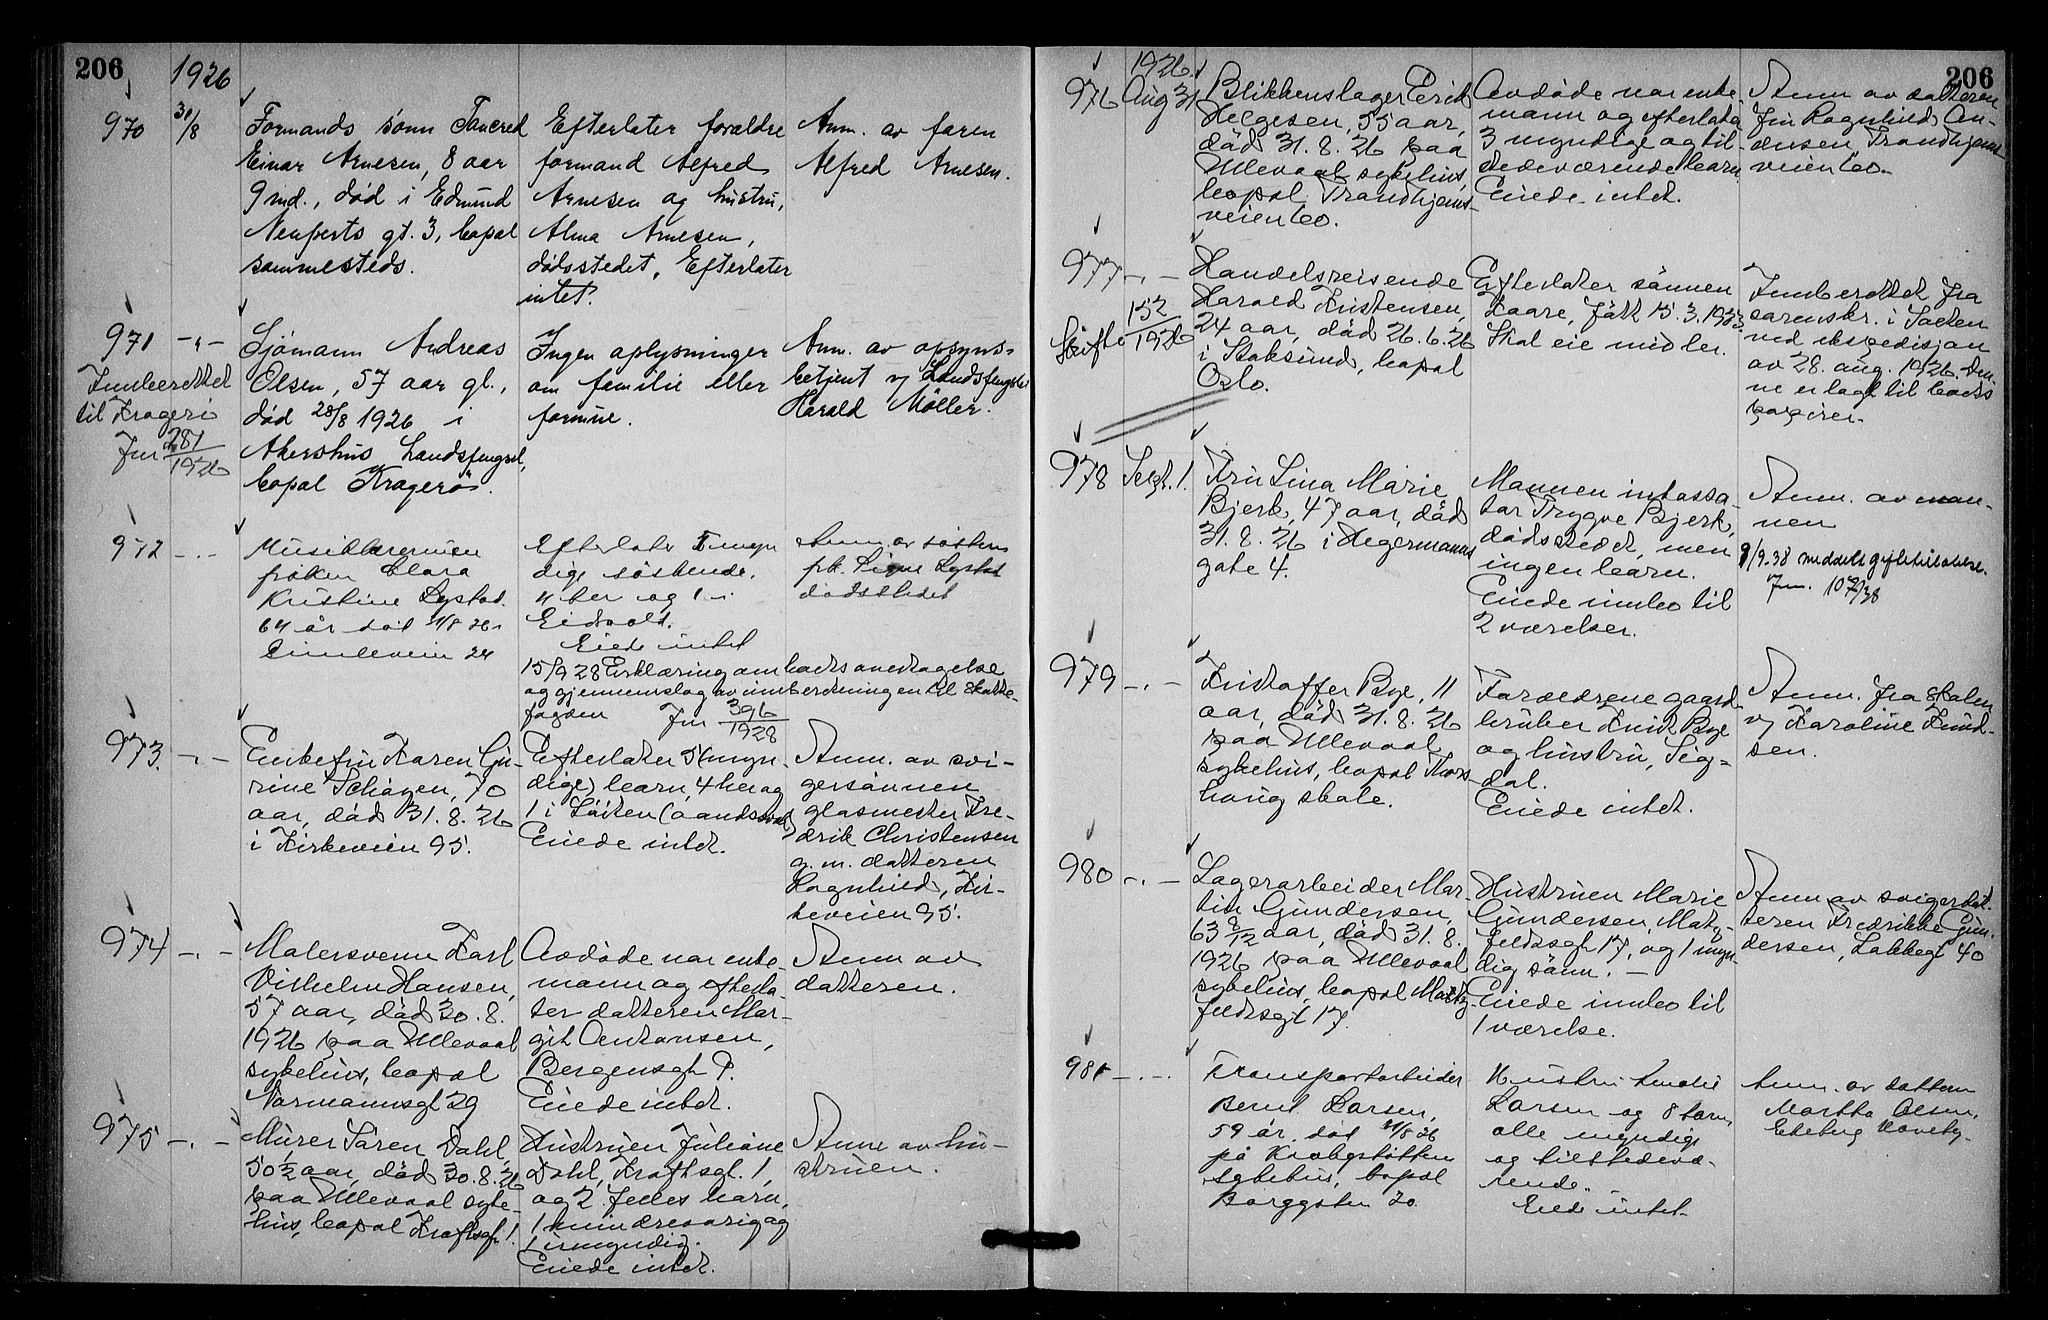 206
1926
970
31/8
Formands sønn Tancred
Einar Arnesen, 8 aar
9 md., død i Edmund
Neuperts gt. 3, bopæl
sammesteds.
Efterlater forældre
formand Alfred
Arnesen og hustru,
Alma Arnesen,
dødsstedet, Efterlater
intet.
Anm. av faren
Alfred Arnesen.
971 -"-
Innberettet
til Kragerø
Jnr 281/1926
Sjømann Andreas
Olsen, 57 aar gl.,
død 28/8 1926 i
Akershus Landsfengsel,
bopæl Kragerø.
Ingen oplysninger
om familie eller
formue.
Anm. av opsyns-
betjent v/ Landsfengslet
Harald Møller.
972 -.-
Musiklærerinnen
frøken Clara
Kristine Lystad.
64 år død 31/8 26
Efterlater myn
dige søskende.
her og 1 i
Eidsvold.
Eiede intet
15/9 28 Erklæring om boets overtagelse
og gjennemslag av innberetningen til skatte-
fogden Jnr 396/1928
Anm av søsteren
frk. Signe Lystad
dødsstedet
973. -.-
Enkefru Karen Gu-
rine Schøyen, 70
aar, død 31.8.26
i Kirkeveien 95.
Efterlater 5 (myn-
dige) barn, 4 her og
1 i Løiten (aandssvak)
Eiede intet.
Anm. av svi-
gersønnen
glasmester Fre-
drik Christensen
g. m. datteren
Ragnhild, Kir-
keveien 95.
974 -.-
Malersvenn Karl
Vilhelm Hansen,
57 aar, død 30.8.
1926 paa Ullevaal
sykehus, bopæl
Normannsgt 29
Avdøde var enke-
mann og efterla-
ter datteren Mar-
git Antonsen,
Bergensgt 9.
Eiede intet.
Anm av
datteren.
975 -.-
Murer Søren Dahl,
50 1/2 aar, død 30.8.26
paa Ullevaal syke-
hus, bopæl Kraftsgt. 1.
Hustruen Juliane
Dahl, Kraftsgt. 1,
og 2 felles barn,
1 mindreaarig og
1 umyndig.
Eiede intet.
Anm av hu-
struen.
206
1926
976
Aug 31
Blikkenslager Erik
Helgesen, 55 aar,
død 31.8.26 paa
Ullevaal sykehus,
bopæl Trondhjems-
veien 60.
Avdøde var enke-
mann og efterlater
3 myndige og til-
stedeværende barn.
Eiede intet.
Anm av datteren
fru Ragnhild An-
dersen, Trondhjems-
veien 60.
977 -.-
Skifte 152/1926
Handelsreisende
Harald Kristensen,
24 aar, død 26.6.26
i Stoksund, bopæl
Oslo.
Efterlater sønnen
Kaare, født 15.3.1923.
Skal eie midler.
Innberettet fra
sorenskr. i
ved ekspedisjon
av 28. aug. 1926. Den-
ne er lagt til boets
papirer.
978
Sept. 1.
Fru Lina Marie
Bjerk, 47 aar, død
31.8.26 i Hegermanns
gate 4.
Mannen inkassa-
tor Trygve Bjerk,
dødsstedet, men
ingen barn.
Eiede innbo til
2 værelser.
Anm. av man-
nen
9/9-38 meddelt giftetillatelse.
Jnr.
979 -.-
Kristoffer Bye, 11
aar, død 31.8.26
paa Ullevaal
sykehus, bopæl Thors
haug skole.
Forældrene gaard
bruker Knut Bye
og hustru, Sig-
dal.
Eiede intet.
Anm. fra skolen
v/ Karoline Knud-
sen.
980 -.-
Lagerarbeider Mar-
tin Gundersen,
63 8/12 aar, død 31.8.
1926 paa Ullevaal
sykehus, bopæl Motz-
feldtsgt 17.
Hustruen Marie
Gundersen, Motz-
feldtsgt. 17, og 1 myn-
dig sønn. -
Eiede innbo til
1 værelse.
Anm av svigerdat-
teren Fredrikke Gun-
dersen, Lakkegt 40
981 -.-
Transportarbeider
Bernt Larsen,
59 år død 31/8 26
på Krohgstøtten
sykehus, bopæl
Borggaten 20.
Hustru Amalie
Larsen og 8 barn,
alle myndige
og tilstedevæ-
rende.
Eiede intet.
Anm. av datteren
Martha Olsen,
Ekeberg